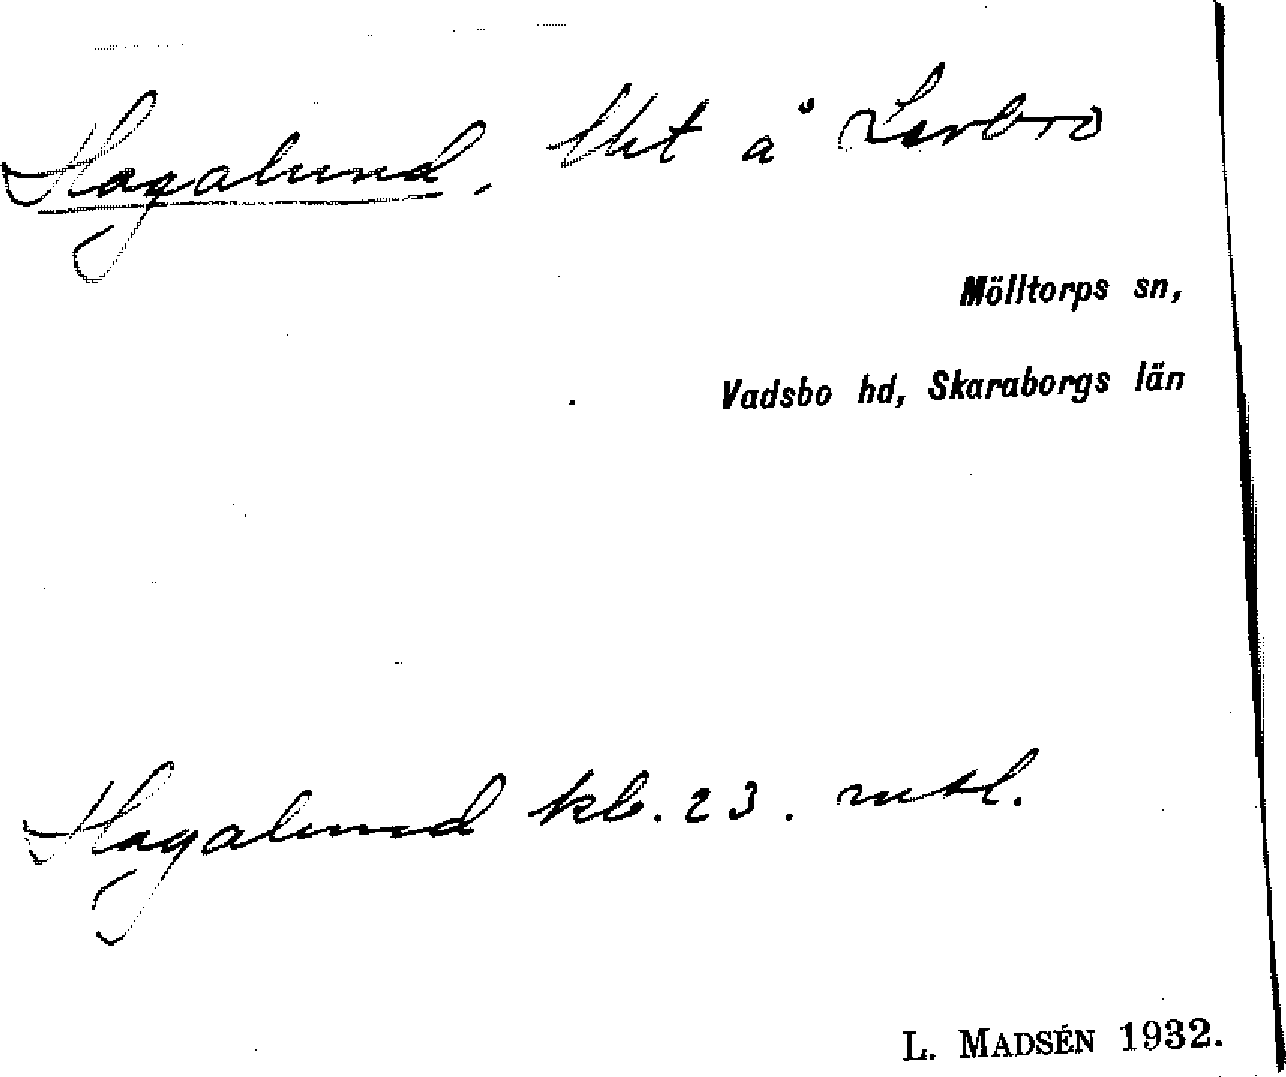 Hagalund, lht å Lerbro
Mölltorps sn,
Vadsbo hd, Skaraborgs län
Hagalund kb. 23. mtl.
L. MADSÉN 1932.